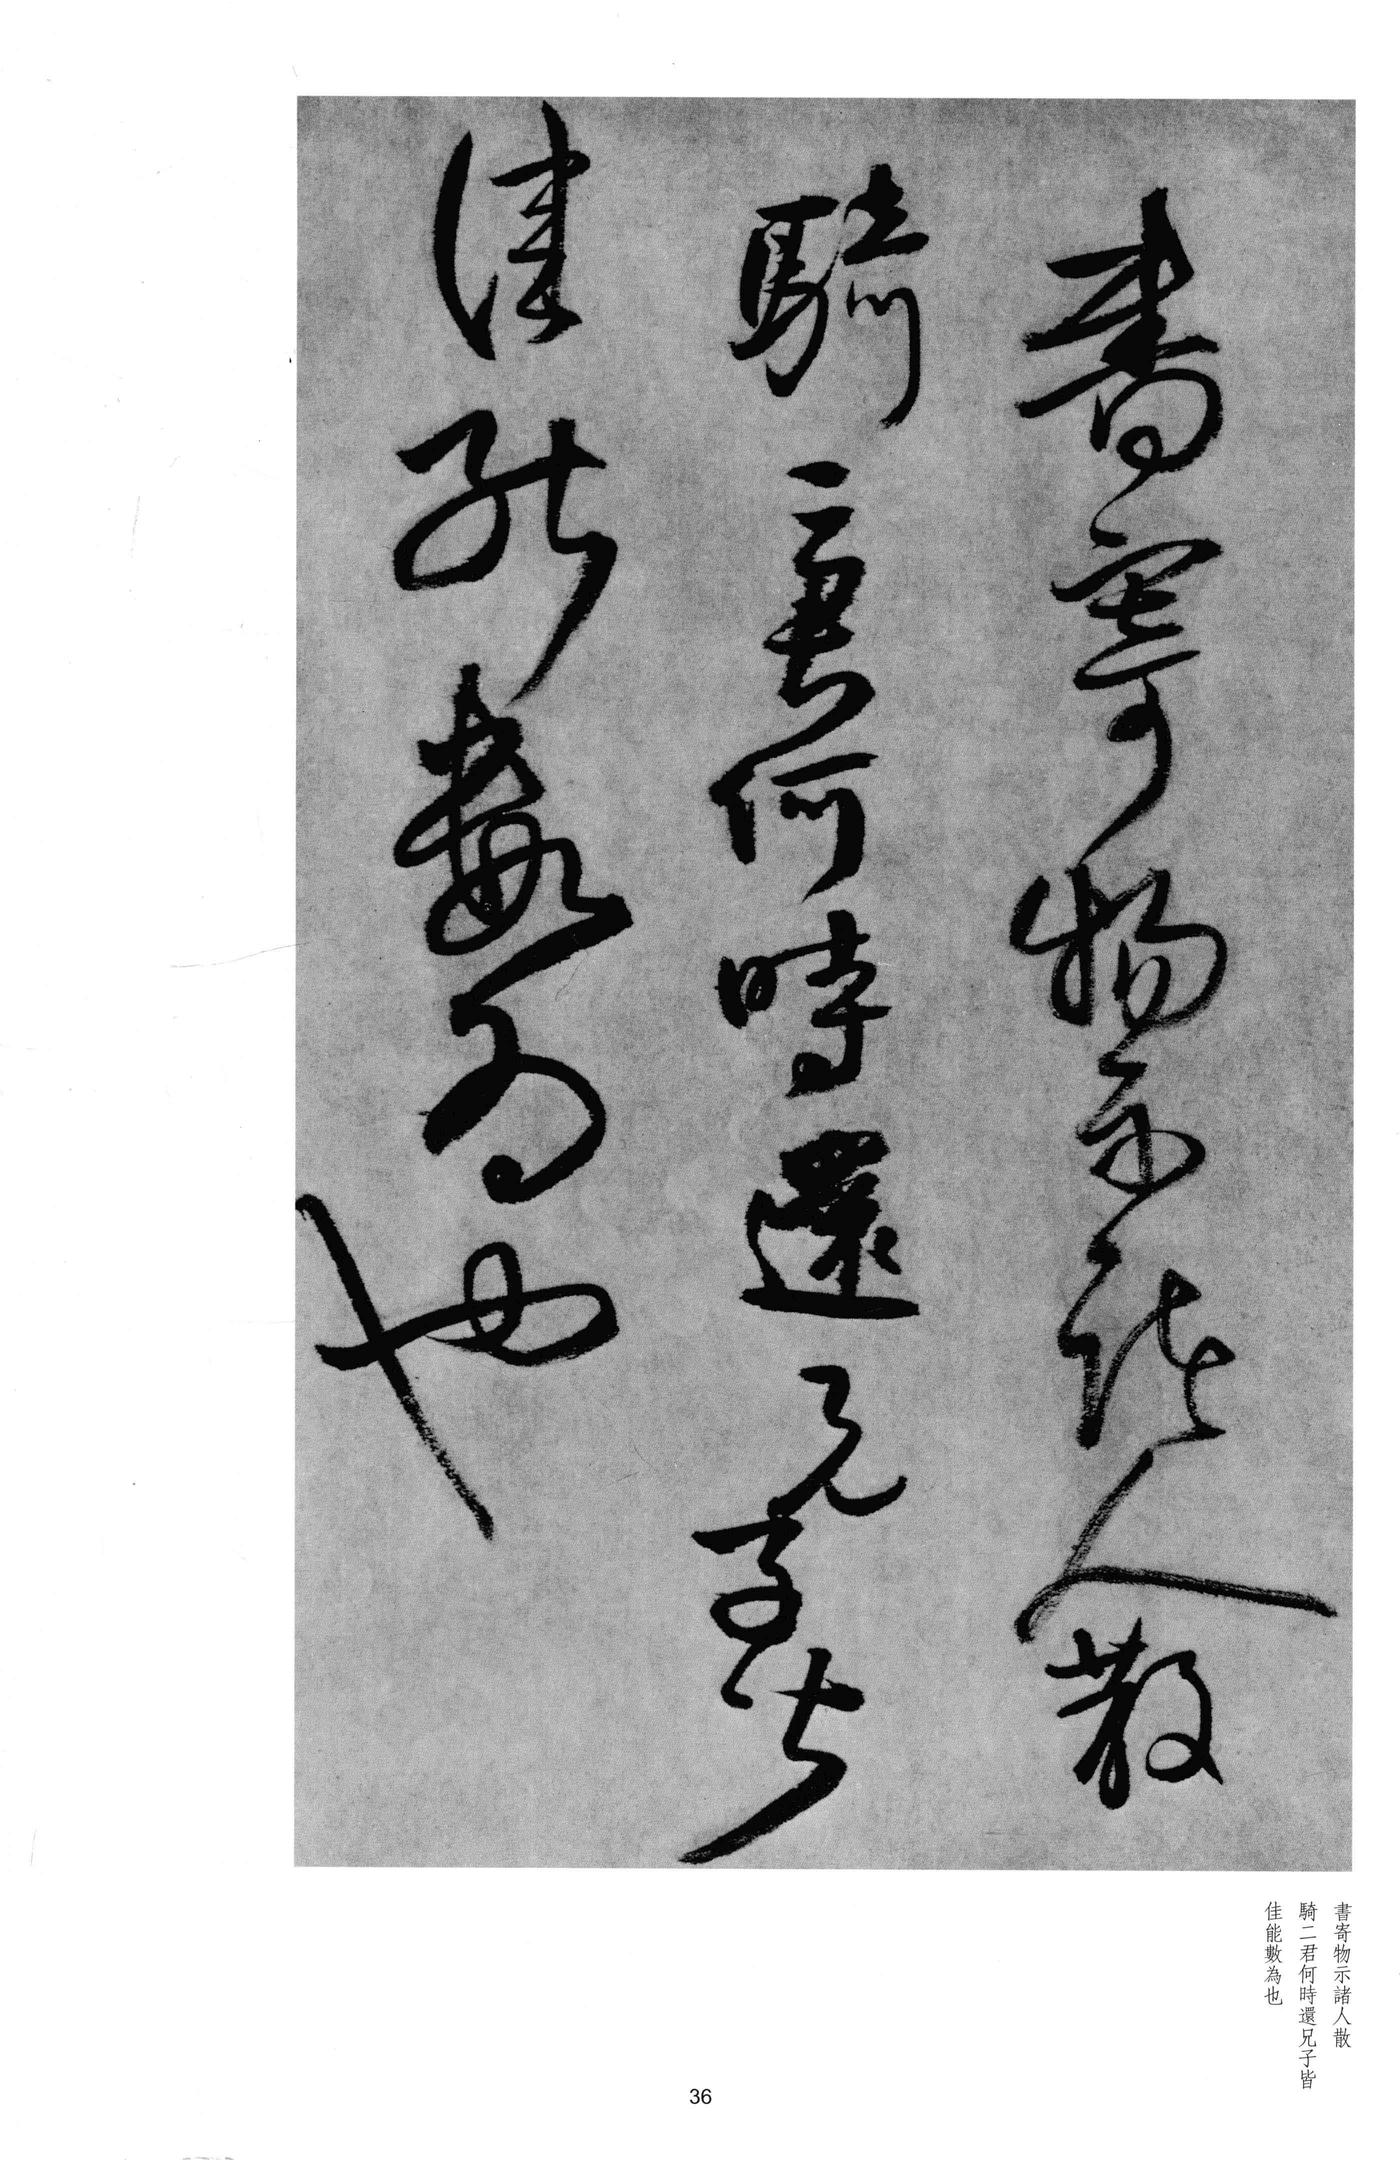 書寄物示諸人散
騎二妻何時還兄子皆
佳能數為也
書寄物示諸人散
騎二君何時還兄子皆
佳能數為也
36